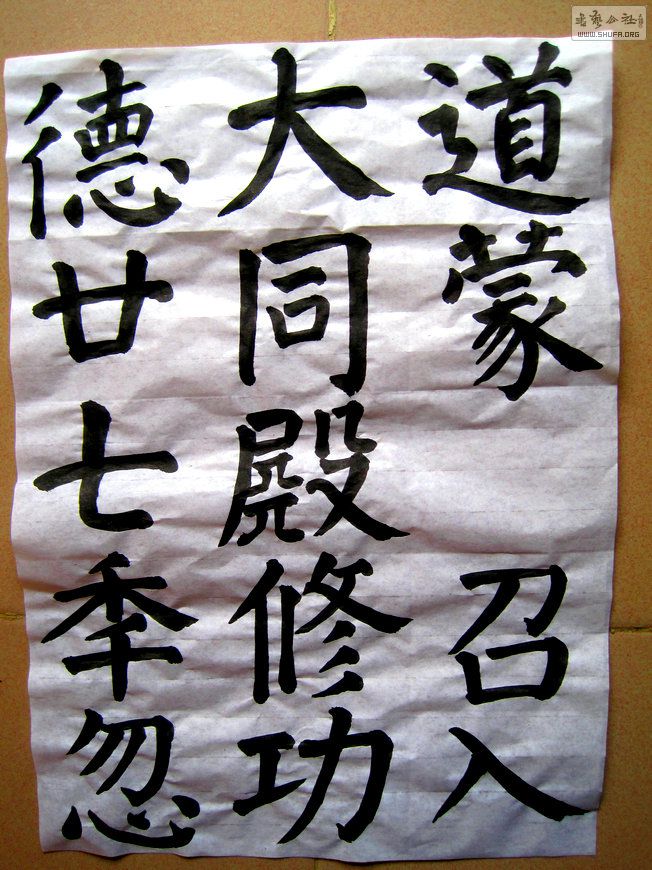 道蒙 召入
大同殿修功
德廿七秊忽
書藝公社
WWW.SHUFA.ORG